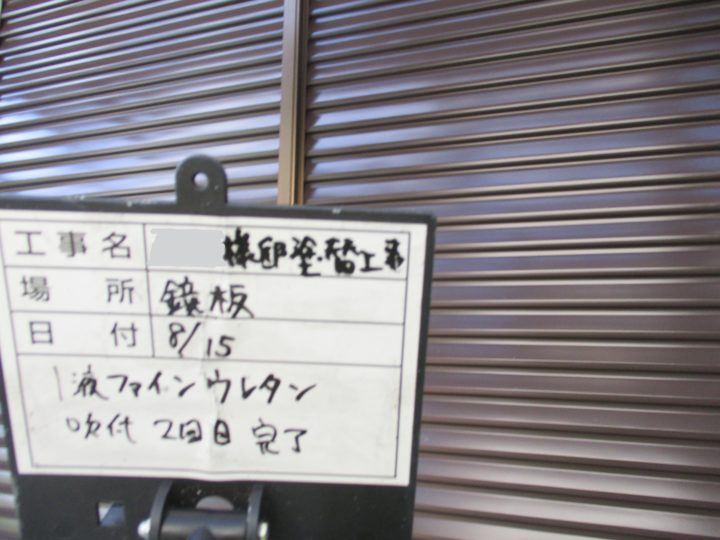 工事名 様邸塗替工事
場所 鏡板
日付 8/15
1液ファインウレタン
吹付 2回目 完了